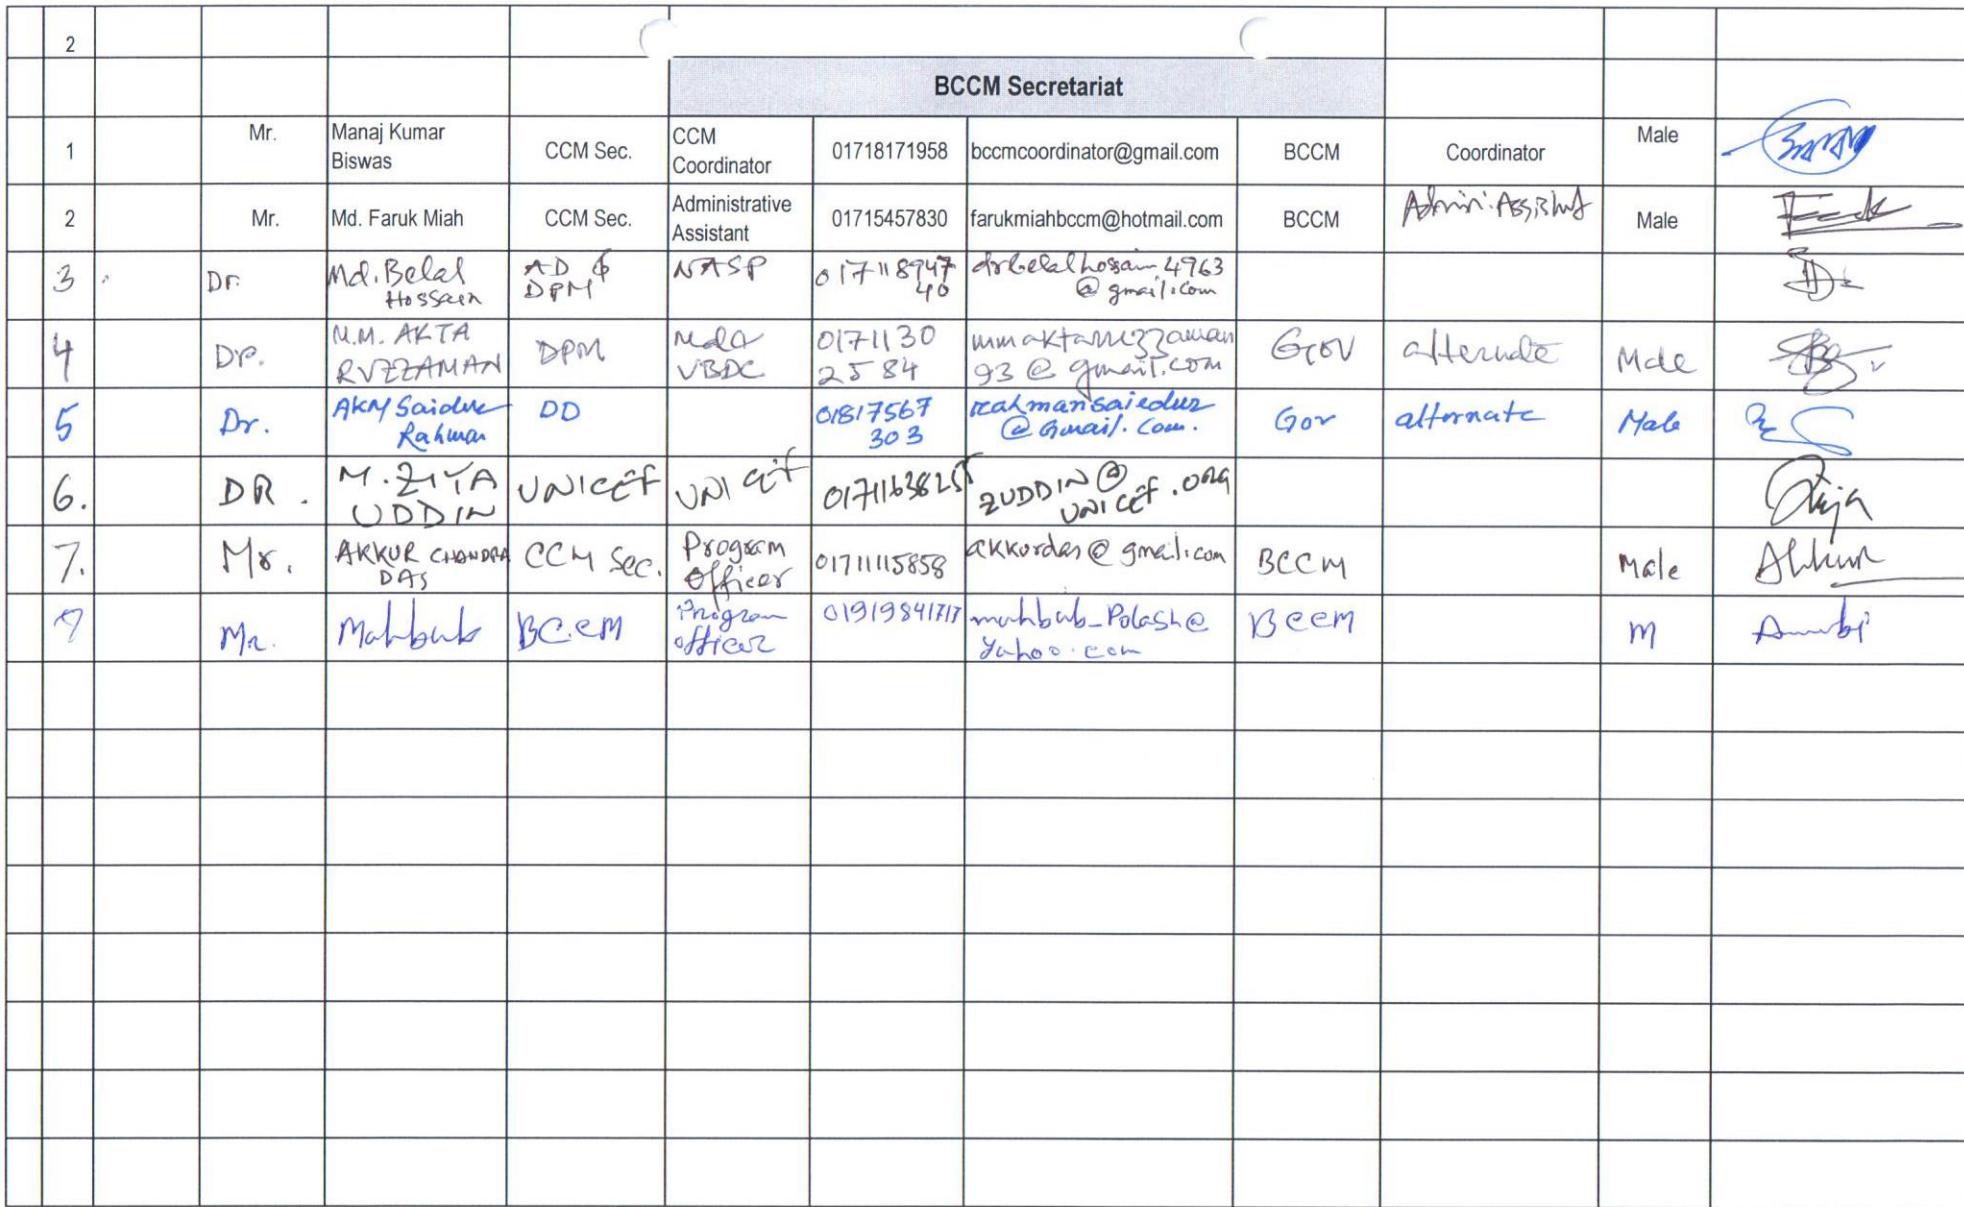 2
BCCM Secretariat
1 Mr. Manaj Kumar Biswas CCM Sec. CCM Coordinator 01718171958 bccmcoordinator@gmail.com BCCM Coordinator Male
2 Mr. Md. Faruk Miah CCM Sec. Administrative Assistant 01715457830 farukmiahbccm@hotmail.com BCCM Admin. Assistant Male
3 Dr. Md. Belal Hossain AD & DPM NASP 01711894740 drbelalhossain4963@gmail.com
4 Dr. M.M. AKTARUZZAMAN DPM VBDC 01711302584 mmaktaruzzaman93@gmail.com Gov alternate Male
5 Dr. AKM Saidur Rahman DD 01817567303 rahmansaiedur@Gmail.com. Gov alternate Male
6. DR. M. ZIYA UDDIN UNICEF UNICEF ZUDDIN@UNICEF.ORG
7. Mr. AKKUR CHANDRA DAS CCM Sec. Program Officer 01711115858 akkurdas@gmail.com BCCM Male
Mr. Mahbub BCCM Program officer 01919841717 mahbub_Polash@yahoo.com BCCM M